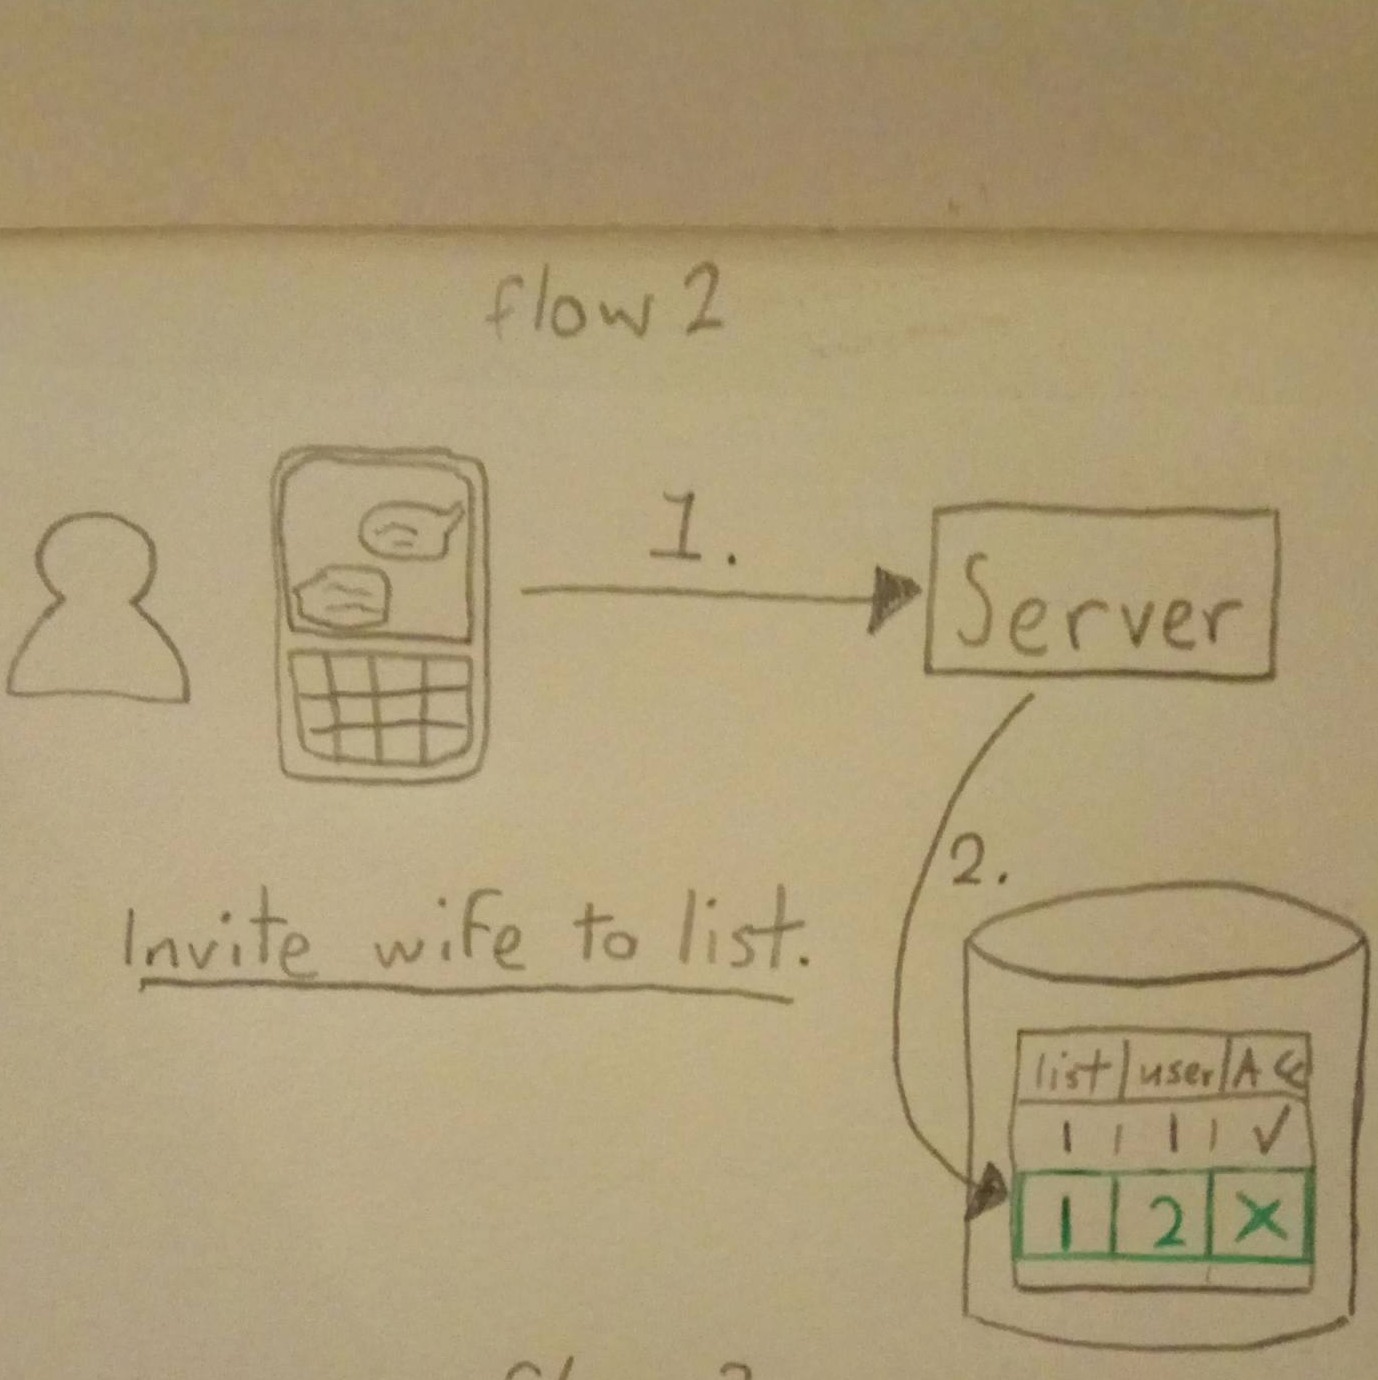 flow 2
1.
Server
2.
Invite wife to list.
list user
1 1 ✓
1 2 X